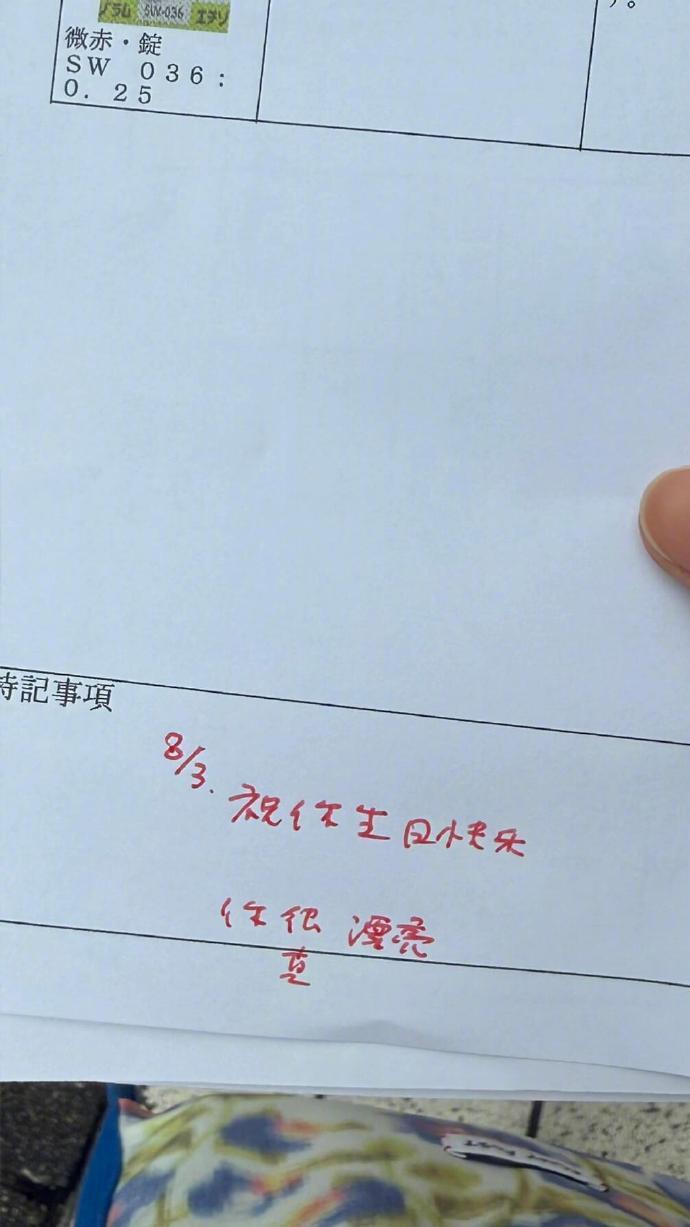 ゾラム SW-036 エチゾ
微赤・錠
SW 036:
0.25
す。
特記事項
8/3. 祝你生日快乐
你很漂亮
真